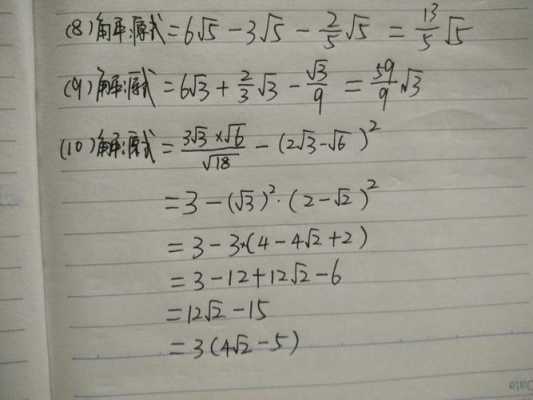 (8)解:原式=6√5-3√5-2/5√5=13/5√5
(9)解:原式=6√3+2/3√3-√3/9=59/9√3
(10)解:原式=3√3×√6/√18-(2√3-√6)²
=3-(√3)²·(2-√2)²
=3-3×(4-4√2+2)
=3-12+12√2-6
=12√2-15
=3(4√2-5)